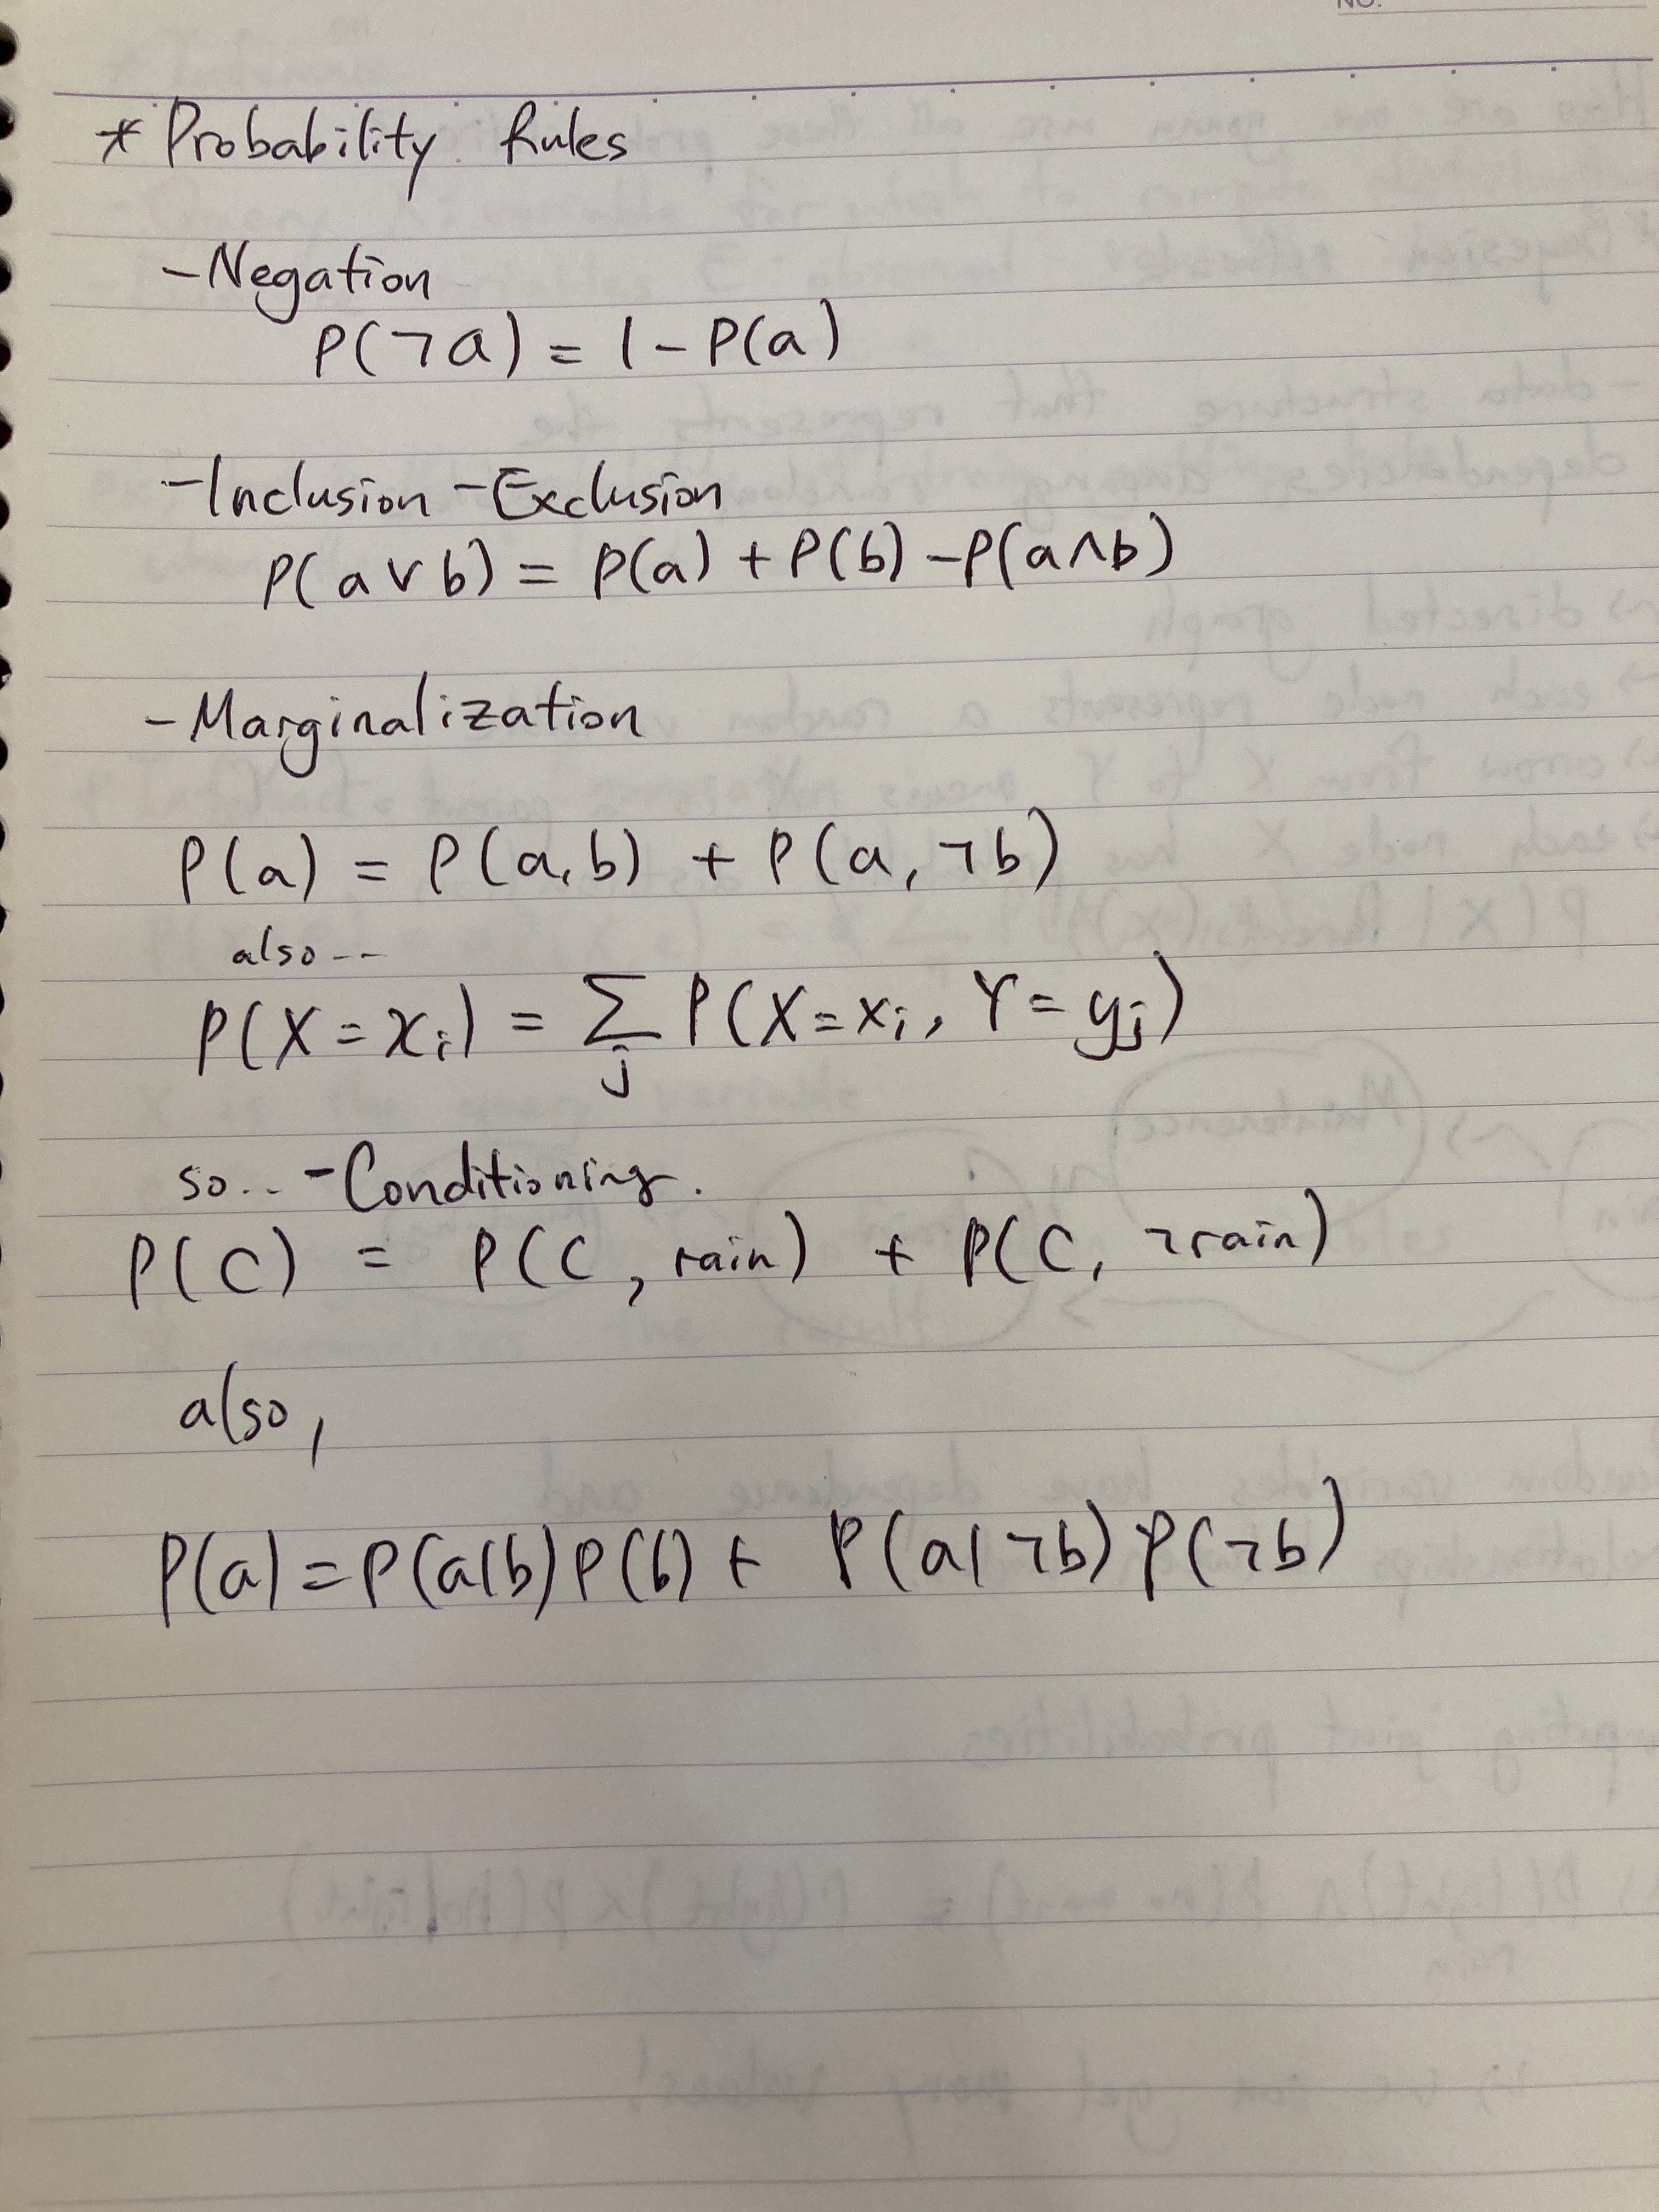 NO.
* Probability Rules
- Negation
P(¬a) = 1 - P(a)
- Inclusion - Exclusion
P(a ∨ b) = P(a) + P(b) - P(a ∧ b)
- Marginalization
P(a) = P(a, b) + P(a, ¬b)
also --
P(X = xᵢ) = Σⱼ P(X = xᵢ, Y = yⱼ)
so.. - Conditioning.
P(C) = P(C, rain) + P(C, ¬rain)
also,
P(a) = P(a|b) P(b) + P(a|¬b) P(¬b)